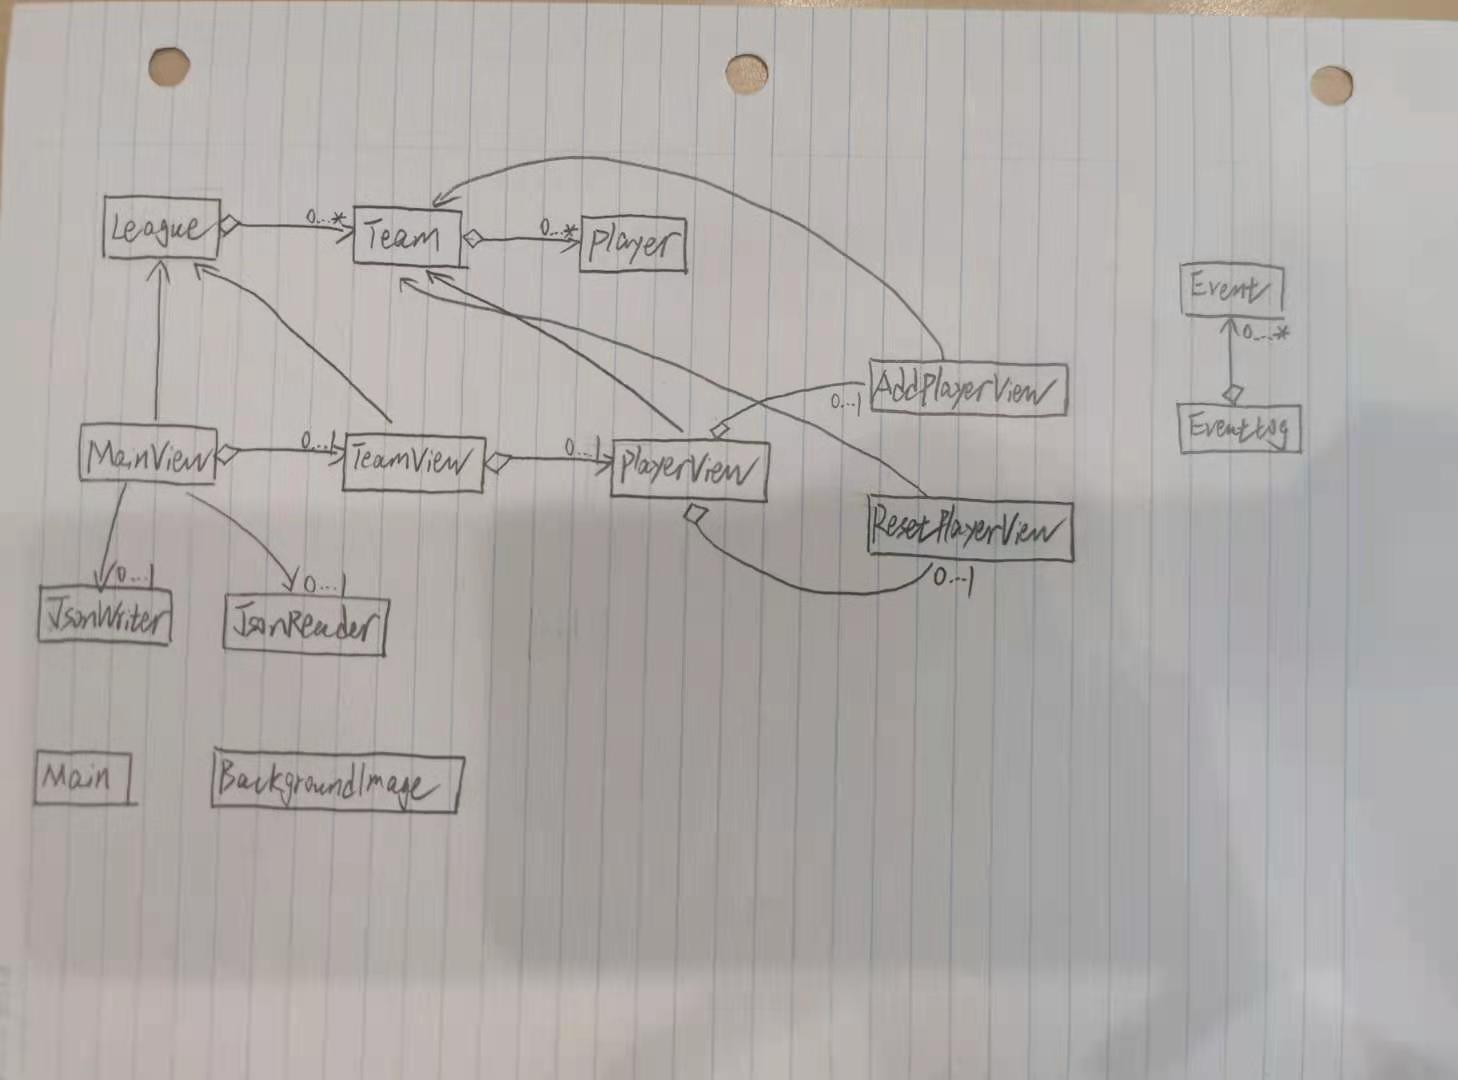 League
0...*
Team
0...*
Player
Event
0...*
AddPlayerView
0...1
EventLog
MainView
0...1
TeamView
0...1
PlayerView
ResetPlayerView
0...1
0...1
0...1
JsonWriter
JsonReader
Main
BackgroundImage